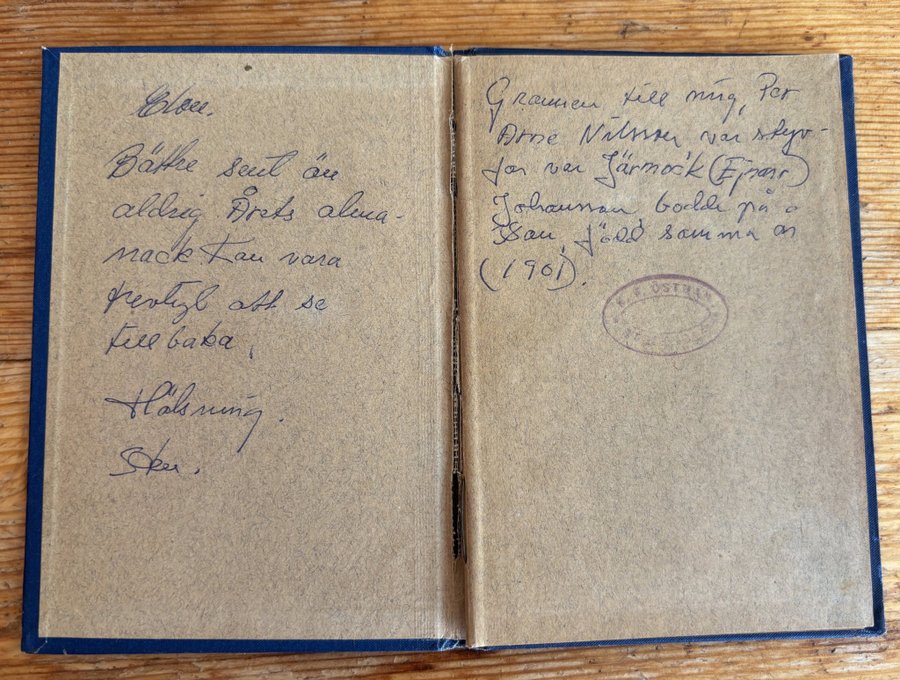 Bättre sent än
aldrig Årets alma-
nack kan vara
att se
tillbaka.
Hälsning.
Sten.
Grannen till mig, Per
Arne Nilsson var styv-
far var Järnock (Ejnar)
Johansson, bodde på
född samma år
(1901).
ÖSTMAN